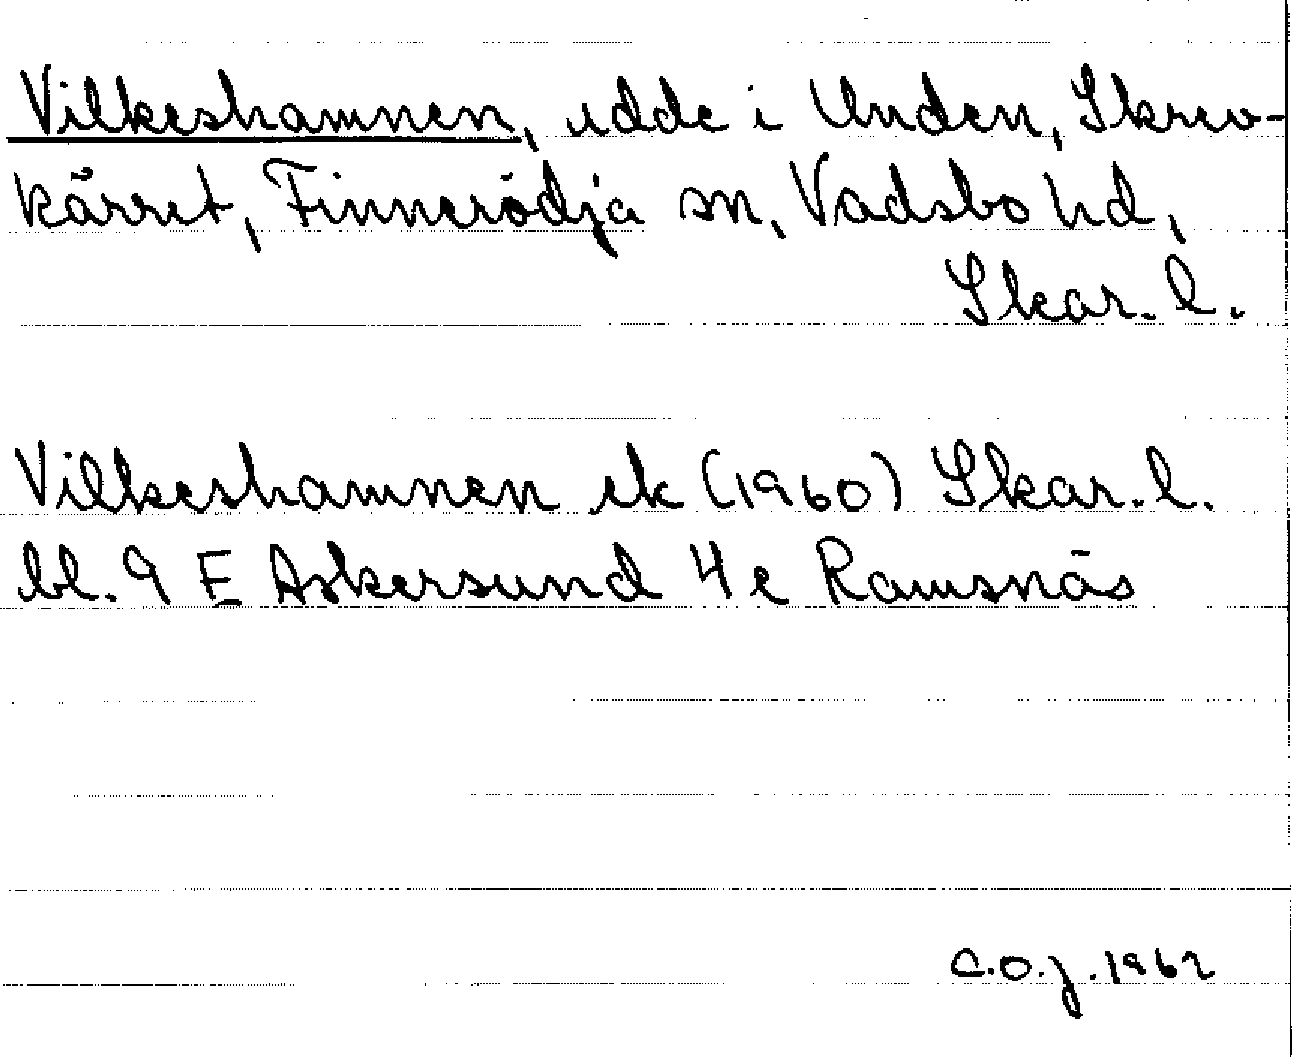 Vilkeshamnen, udde i Unden, Skrev-
kärret, Finnerödja sn, Vadsbo hd,
Skar. l.
Vilkeshamnen ek (1960) Skar. l.
bl. 9 E Askersund 4 e Ramsnäs
C.O.J. 1962